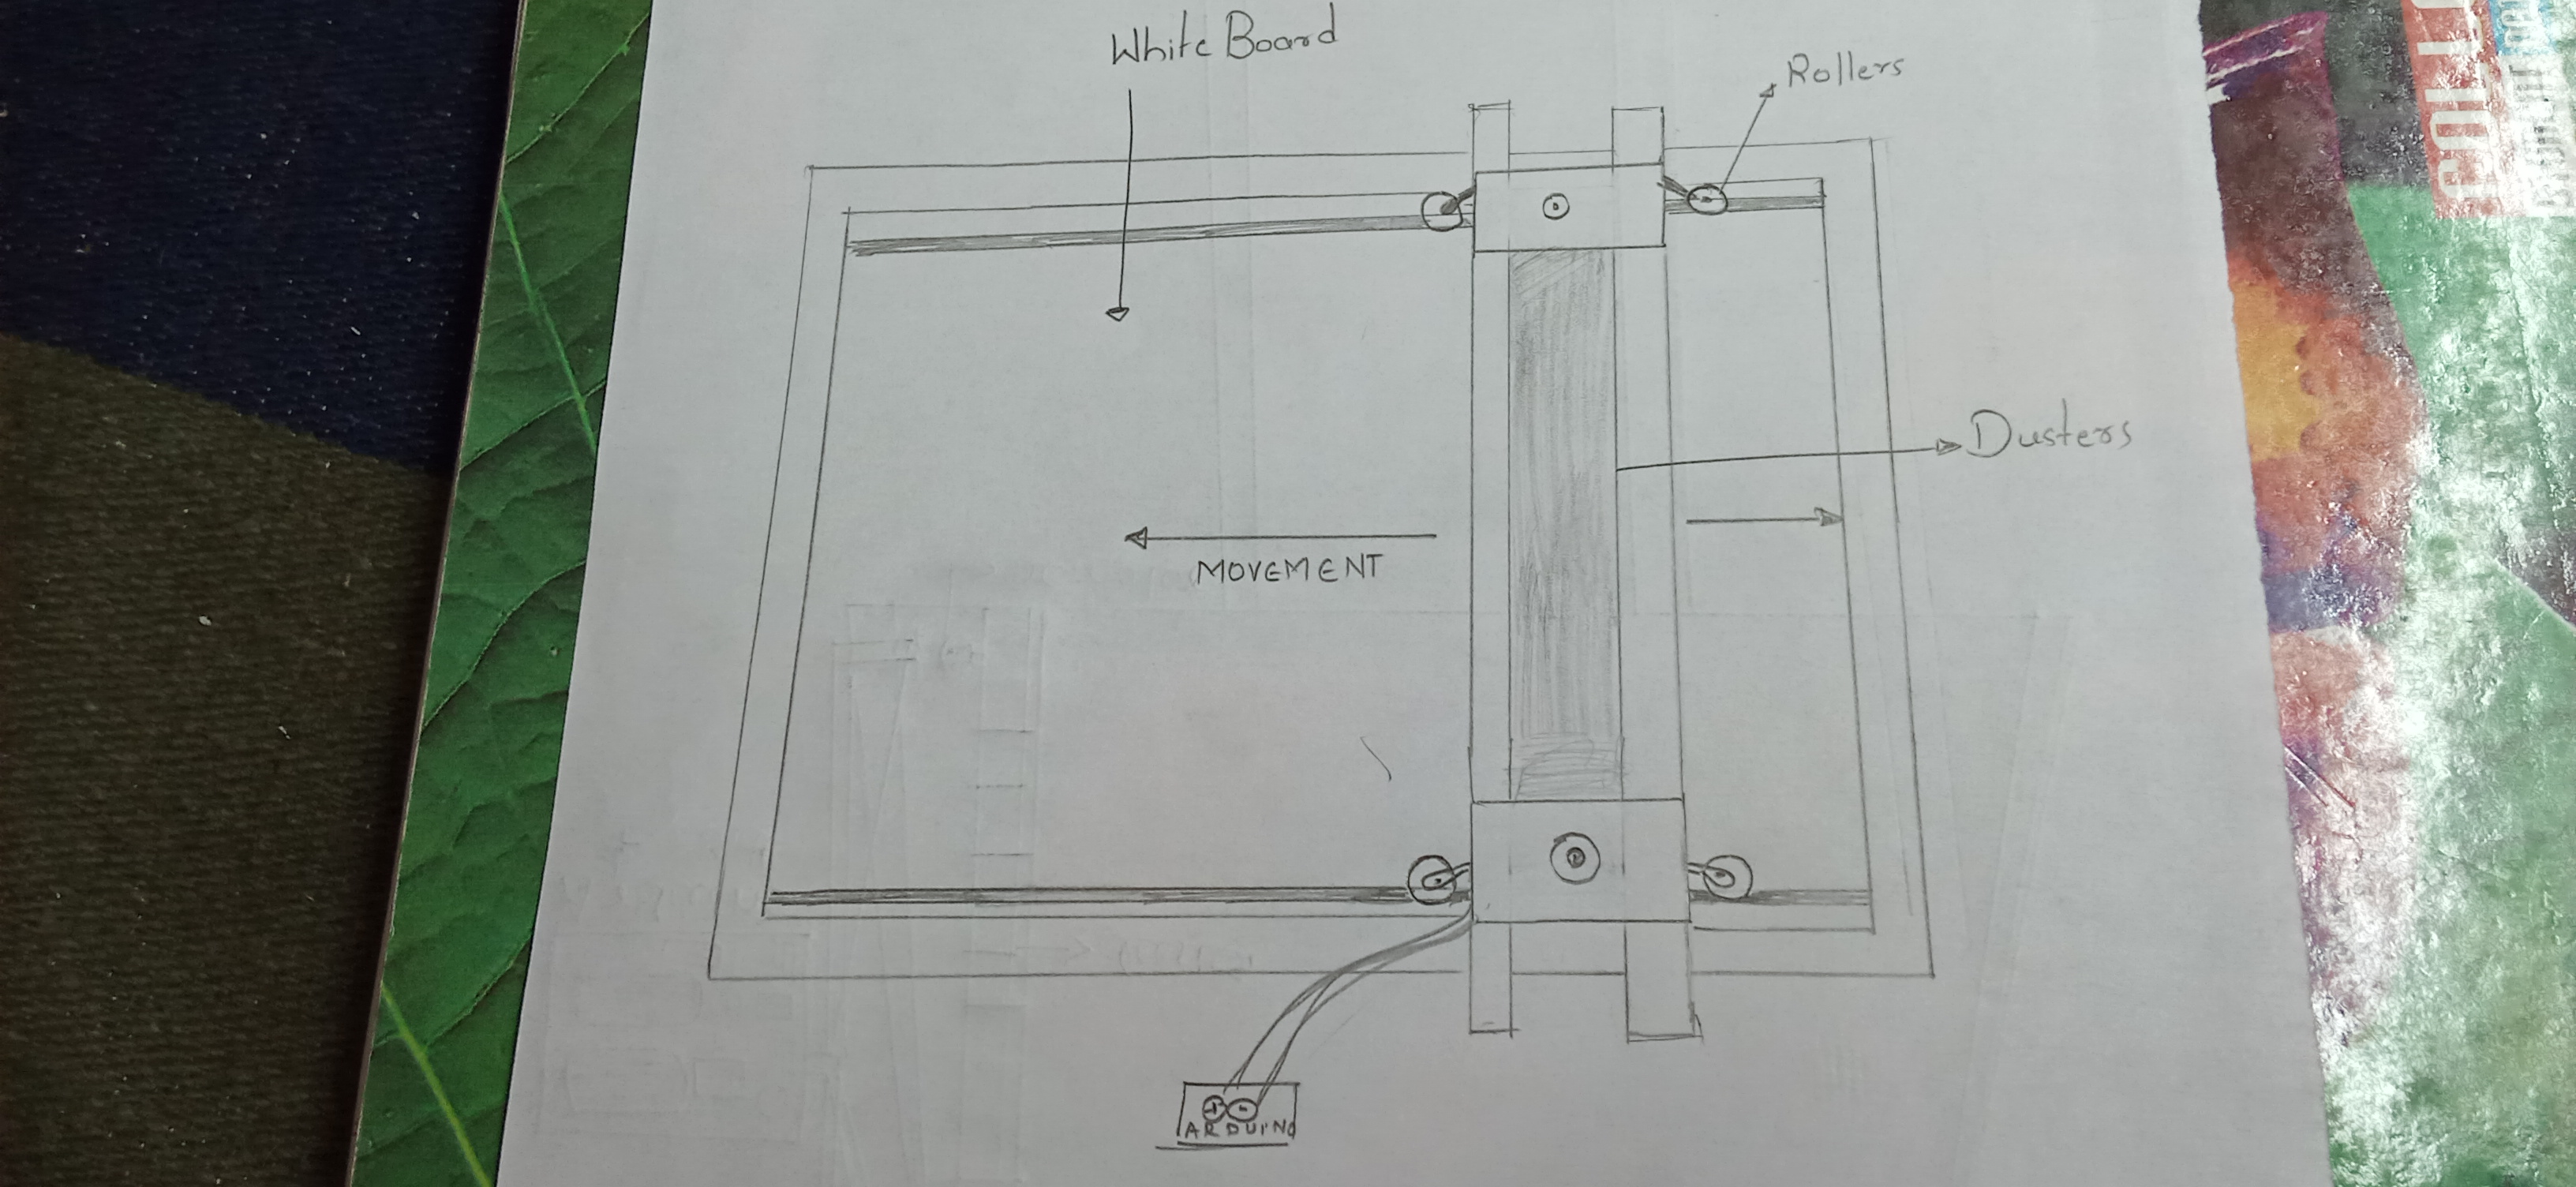 White Board
Rollers
Dusters
MOVEMENT
ARDUINO